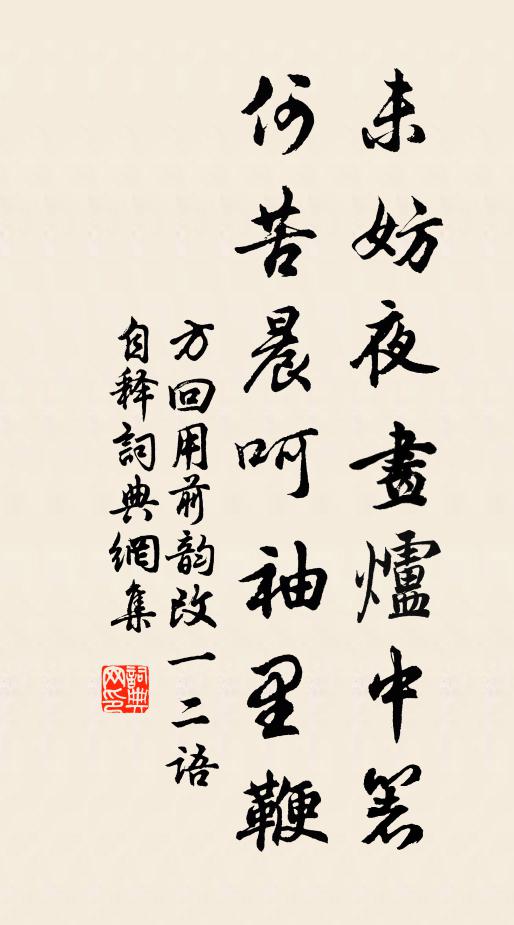 未妨夜畫爐中箸
何苦晨呵袖里鞭
方回用前韵改一二语
自释詞典網集
詞典网印